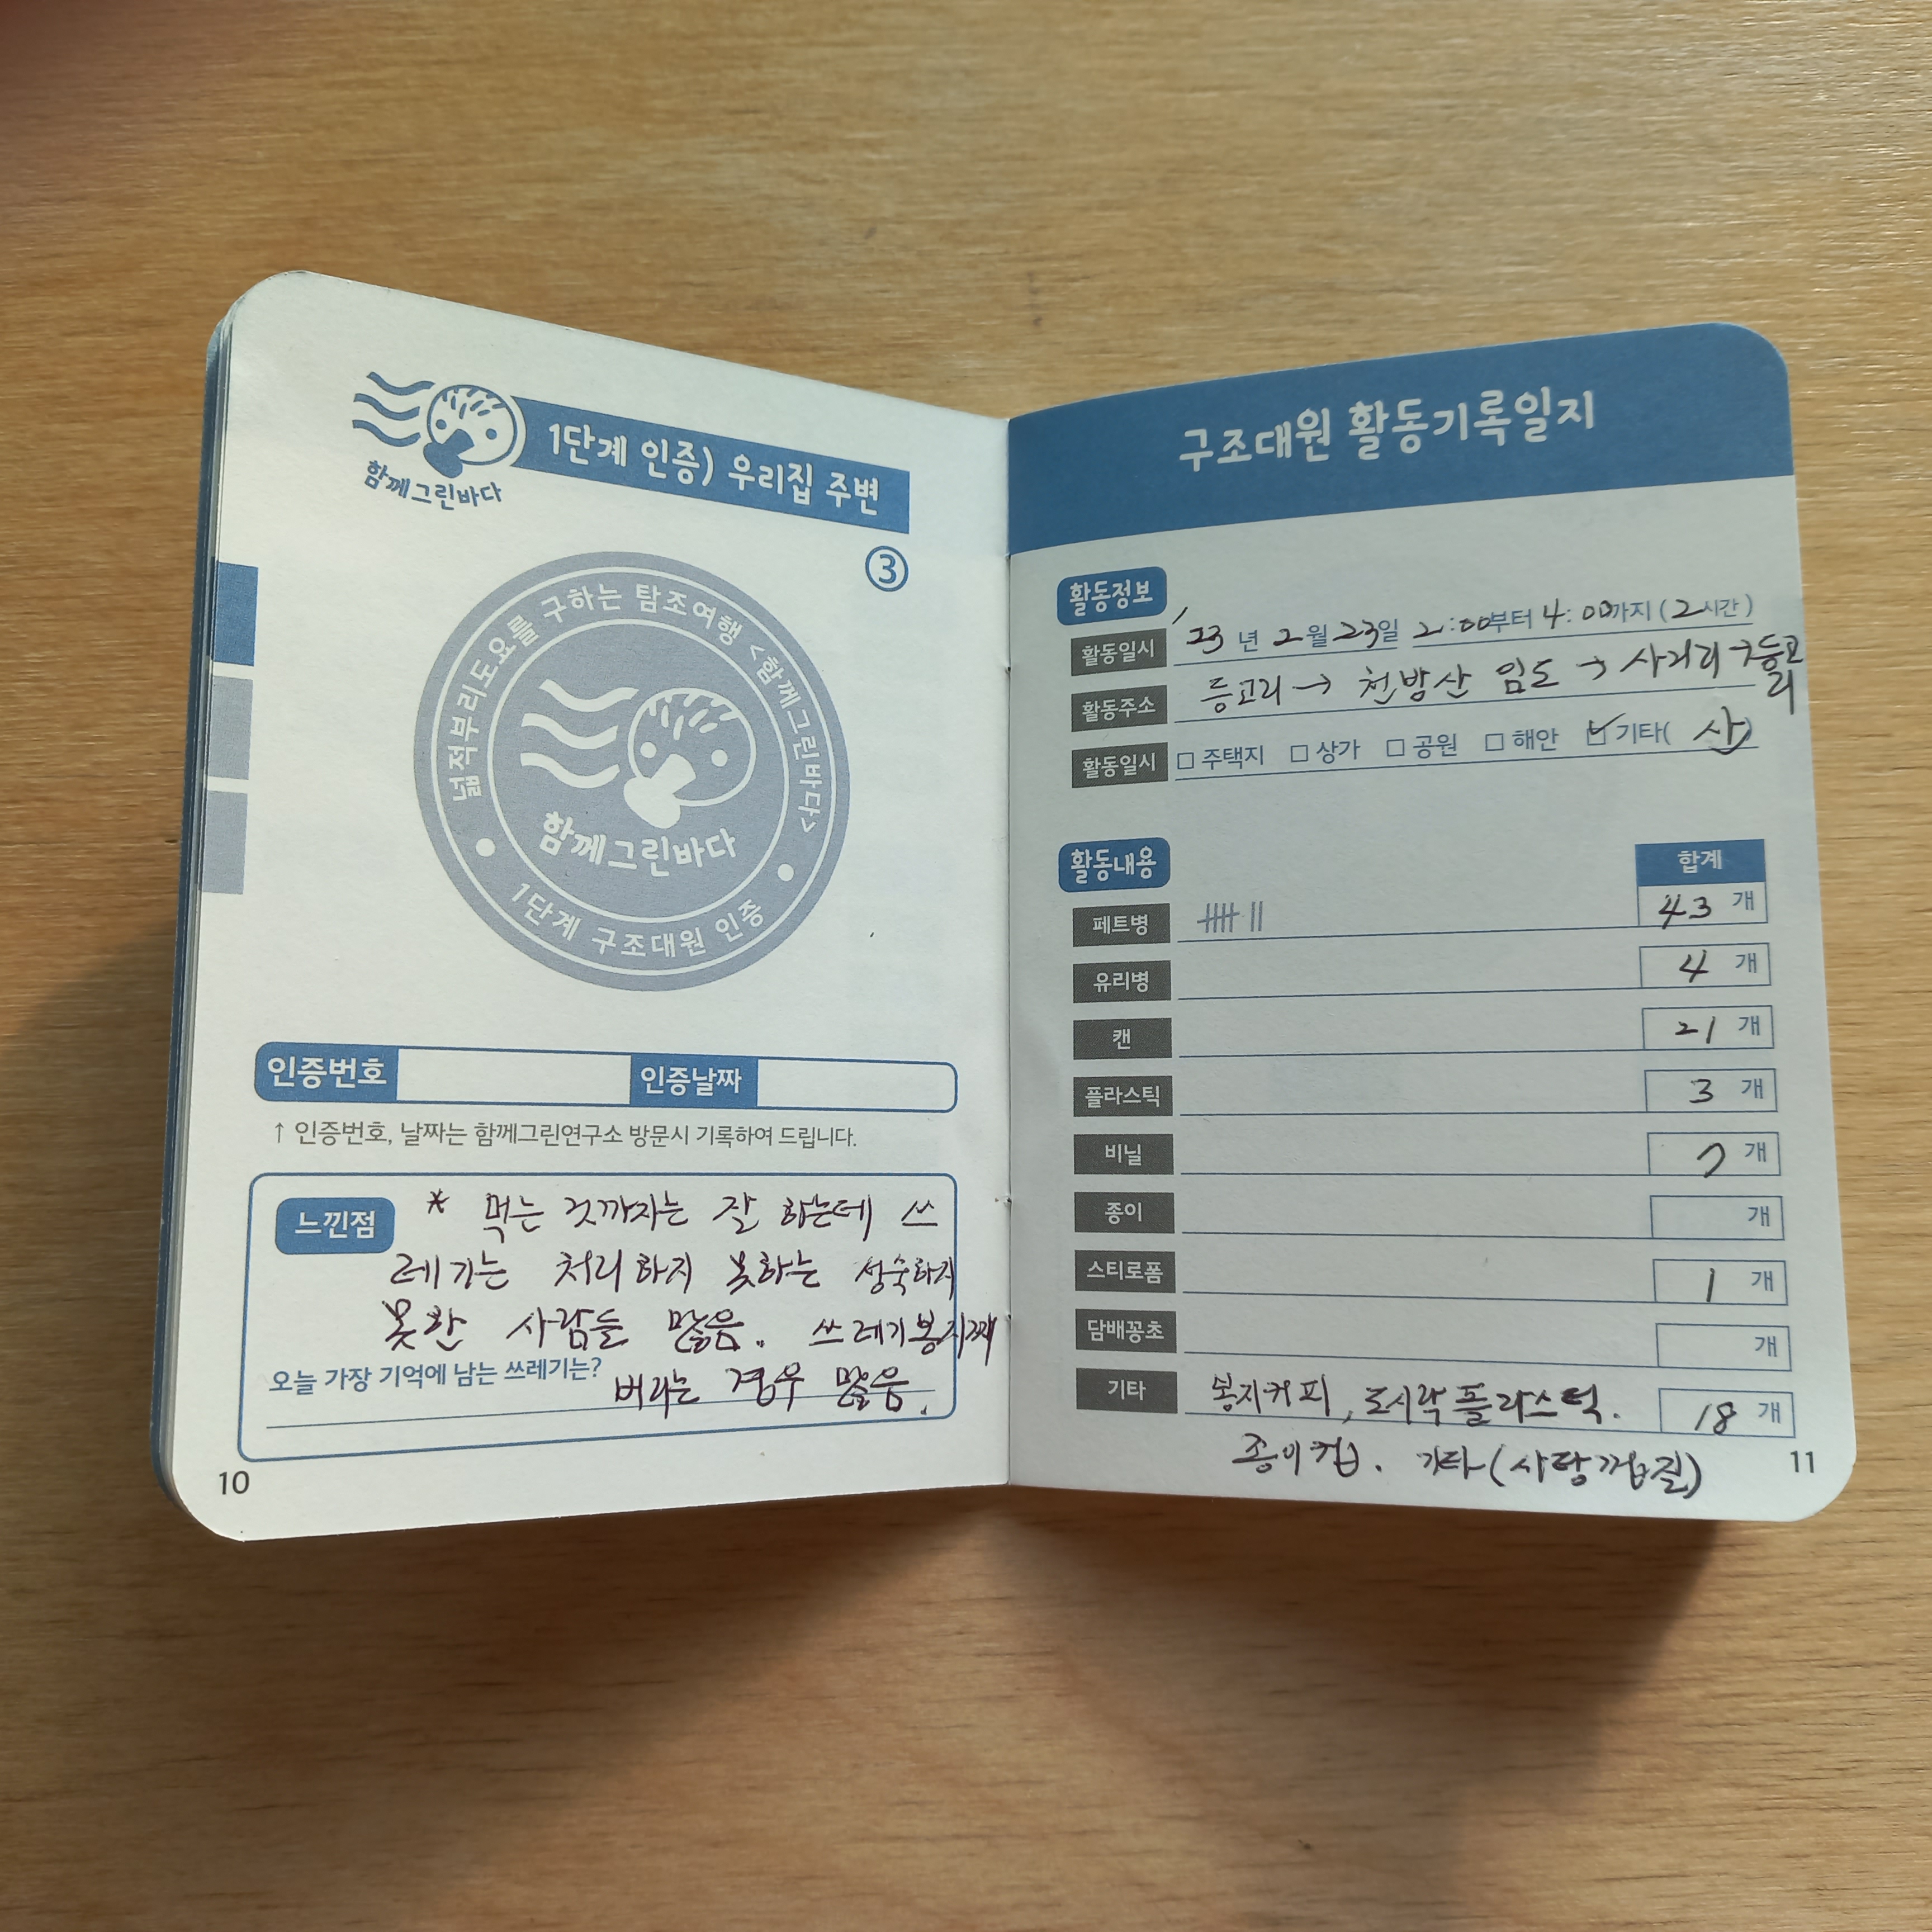 함께그린바다
1단계 인증) 우리집 주변
③
넓적부리도요를 구하는 탐조여행 <함께그린바다>
함께그린바다
1단계 구조대원 인증
인증번호 인증날짜
↑ 인증번호, 날짜는 함께그린연구소 방문시 기록하여 드립니다.
느낀점 * 먹는 것까지는 잘 하는데 쓰
레기는 처리하지 못하는 성숙하지
못한 사람들 많음. 쓰레기봉지째
오늘 가장 기억에 남는 쓰레기는? 버리는 경우 많음.
10
구조대원 활동기록일지
활동정보
활동일시 '23년 2월 23일 2:00부터 4:00까지 (2시간)
활동주소 등고리→ 천방산 임도 → 사리리→등고
리
활동일시 □ 주택지 □ 상가 □ 공원 □ 해안 ☑ 기타( 산 )
활동내용 합계
페트병 43 개
유리병 4 개
캔 21 개
플라스틱 3 개
비닐 7 개
종이 개
스티로폼 1 개
담배꽁초 개
기타 봉지커피, 도시락플라스틱. 18 개
종이컵. 기타(사탕껍질)
11